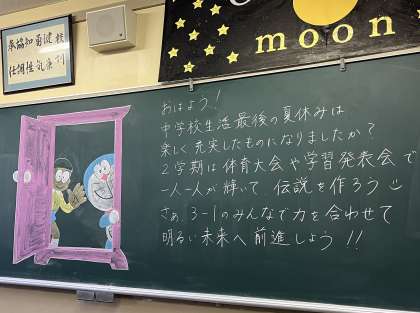 moon
おはよう!
中学校生活最後の夏休みは
楽しく充実したものになりましたか?
2学期は体育大会や学習発表会で
一人一人が輝いて伝説を作ろう
さぁ 3-1のみんなで力を合わせて
明るい未来へ前進しよう!!